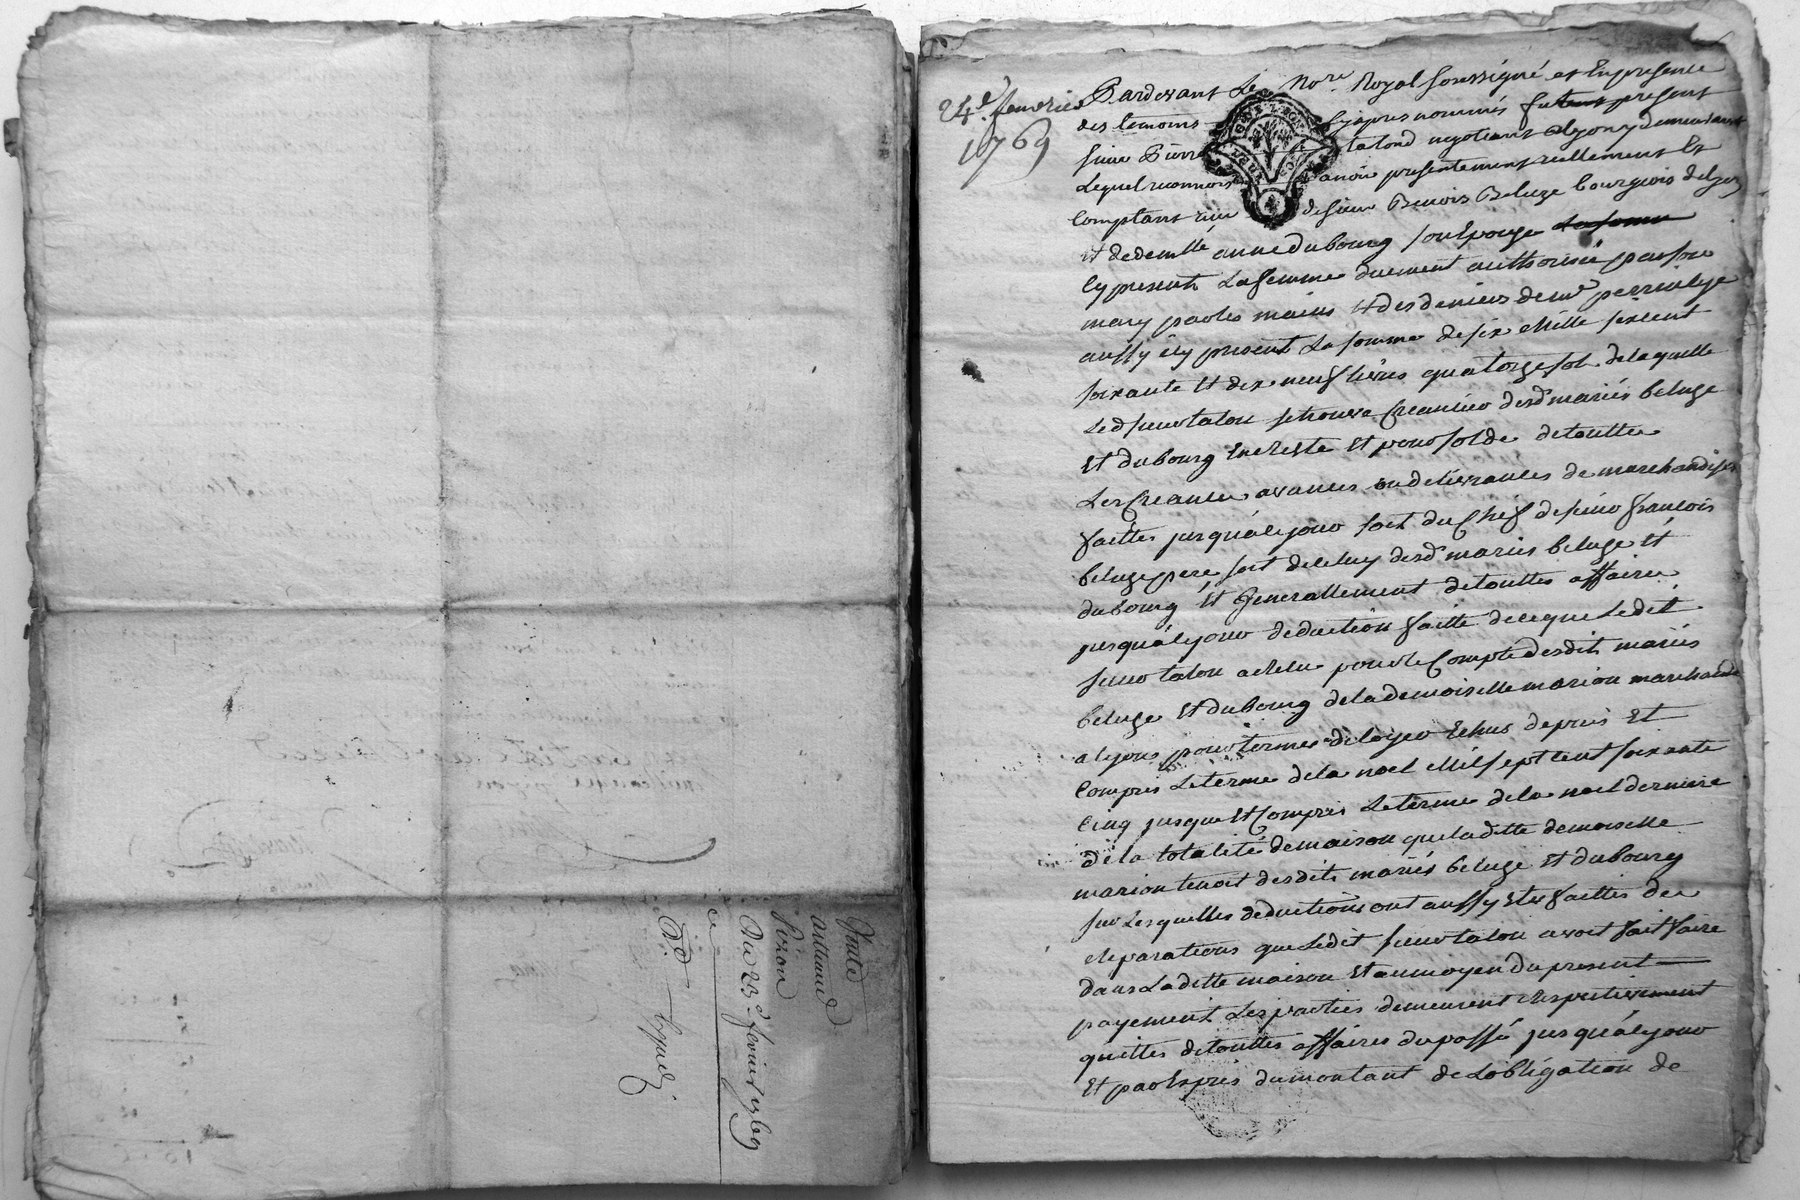 Vente
arthaud
Poizon
Du 23e fevrier 1769
24e. fevrier
1769
Pardevant Le Nore. Royal soussigné et Enpresence
des temoins cyapres nommés fut present
sieur Pierre talond negotiant alyon y demeurant
Lequel reconnoit avoir presentement reellement Et
Comptant reçu de sieur Benoit Beluze bourgeois delyon
Et de demlle anne Dubourg son Epouze La somme
Cy presents La femme duement authorisée par son
mary par les mains Et des deniers de mr perrin lejeune
aussy icy present La somme de six Mille six cent
soixante Et dix neuf livres quatorze sols de laquelle
Led sieur talon se trouve Creancier desd mariés beluze
Et dubourg En Reste Et pour solde de touttes
Les Creances avances ou delivrances de marchandises
faittes jusqu'a ce jour soit du Chef de sieur francois
beluze pere soit de celuy desd mariés beluze Et
dubourg Et generallement de touttes affaires
jusqu'a ce jour deduction faitte de ce que Ledit
sieur talon a Reçu pour le Compte desdits mariés
beluze Et dubourg de la demoiselle marion marchande
a lyon pour termes de loyer Echus depuis Et
Compris Le terme de la noel Mil sept cent soixante
Cinq jusque Et Compris Le terme de la noel derniere
de la totalité de maison que laditte demoiselle
marion tenoit desdits mariés beluze Et dubourg
sur Lesquelles deductions ont aussy Eté faittes des
reparations que Ledit sieur talon avoit fait faire
dans Laditte maison Et au moyen du present
payement Les parties demeurent Respectivement
quittes de touttes affaires du passé jusqu'a ce jour
Et par Expres du montant de Lobligation de